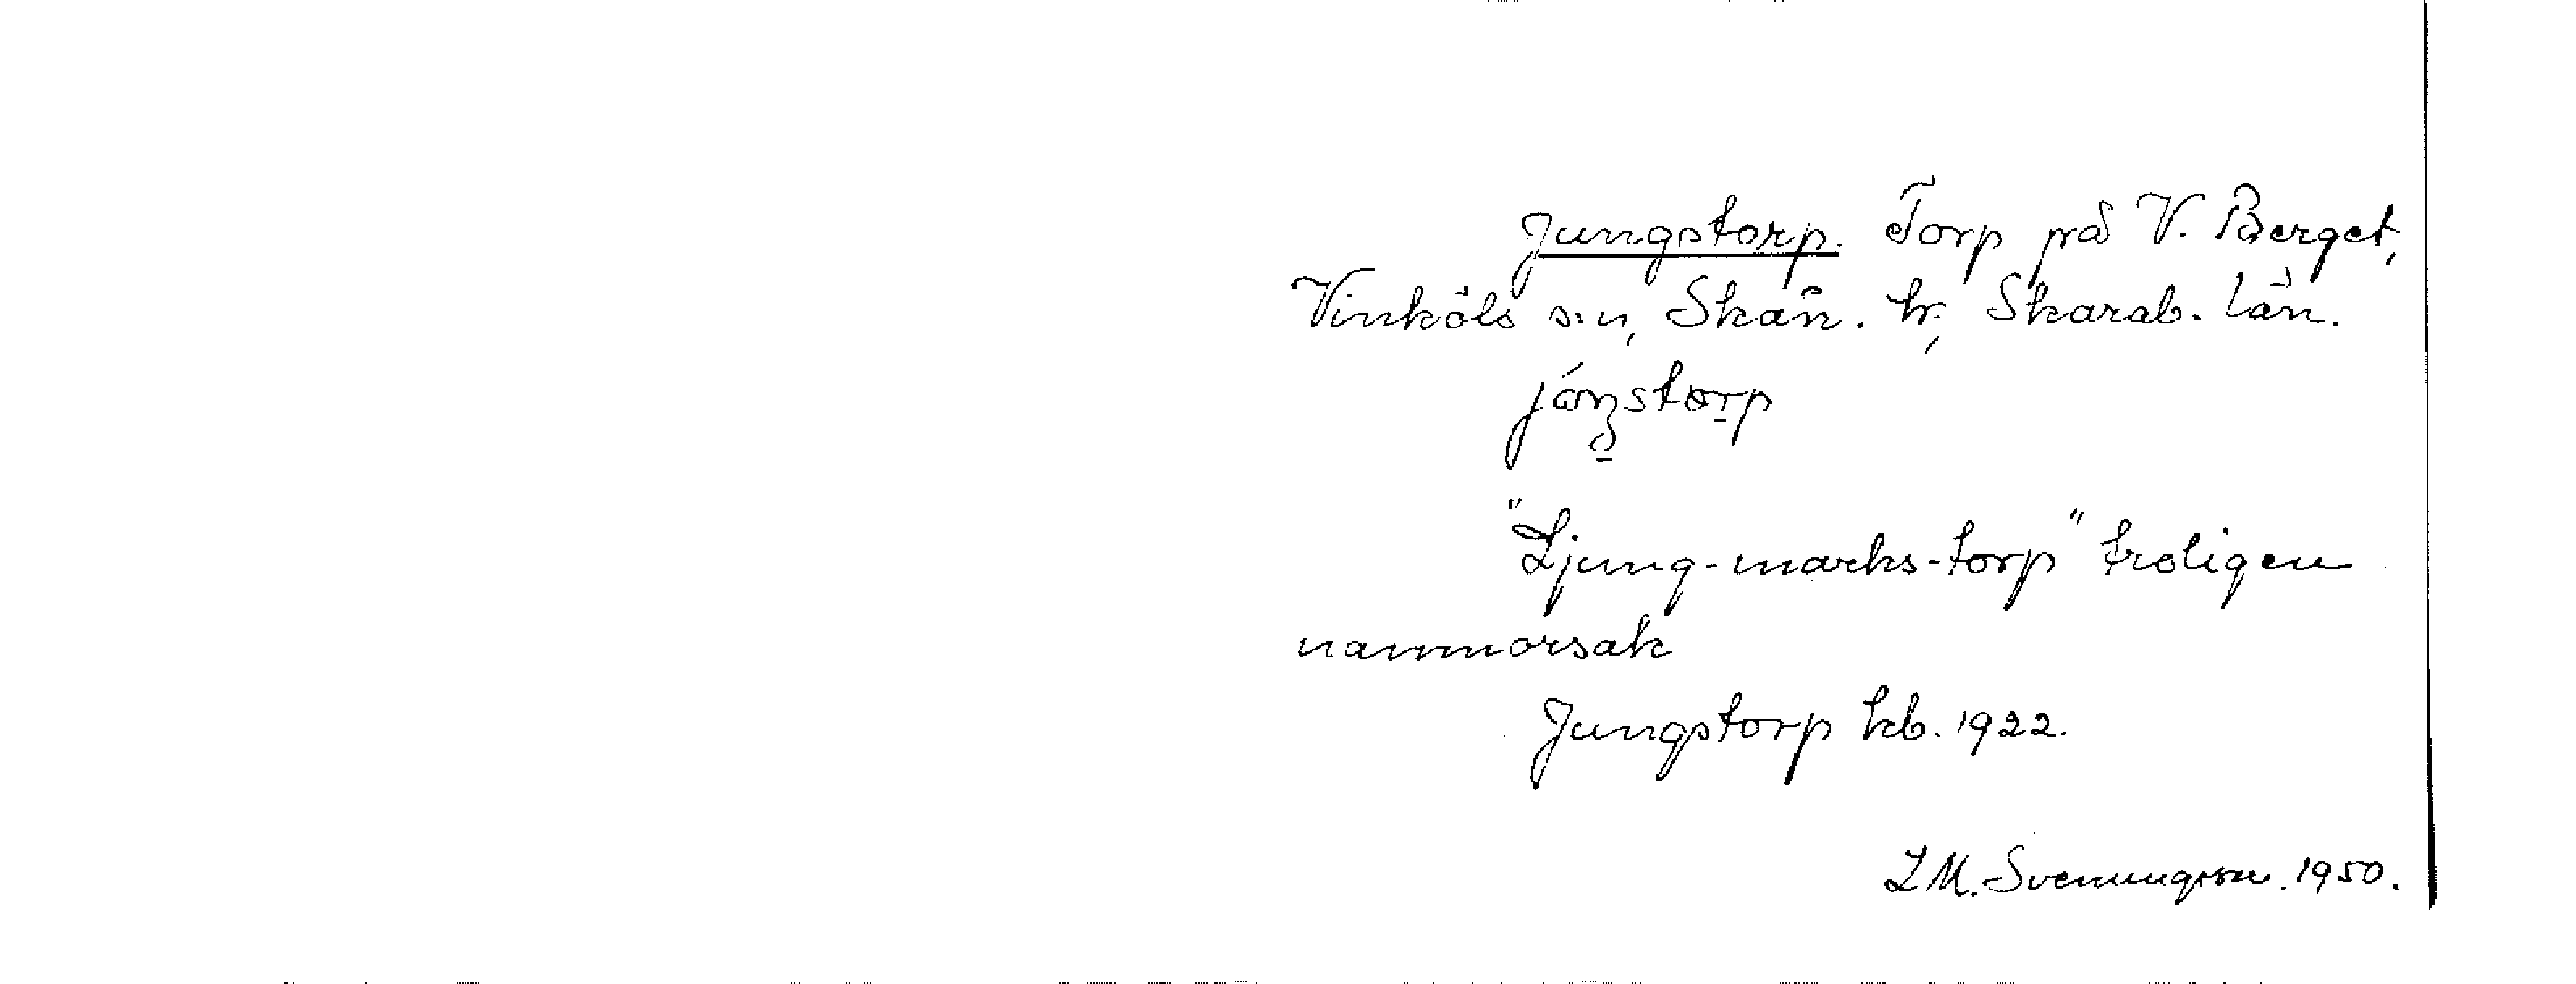 Jungstorp. Torp på V. Berget,
Vinköls s:n, Skån. hr, Skarab. län.
jóŋstorp
"Ljung-marks-torp" troligen
namnorsak
Jungstorp kb. 1922.
L M. Svenungsson. 1950.